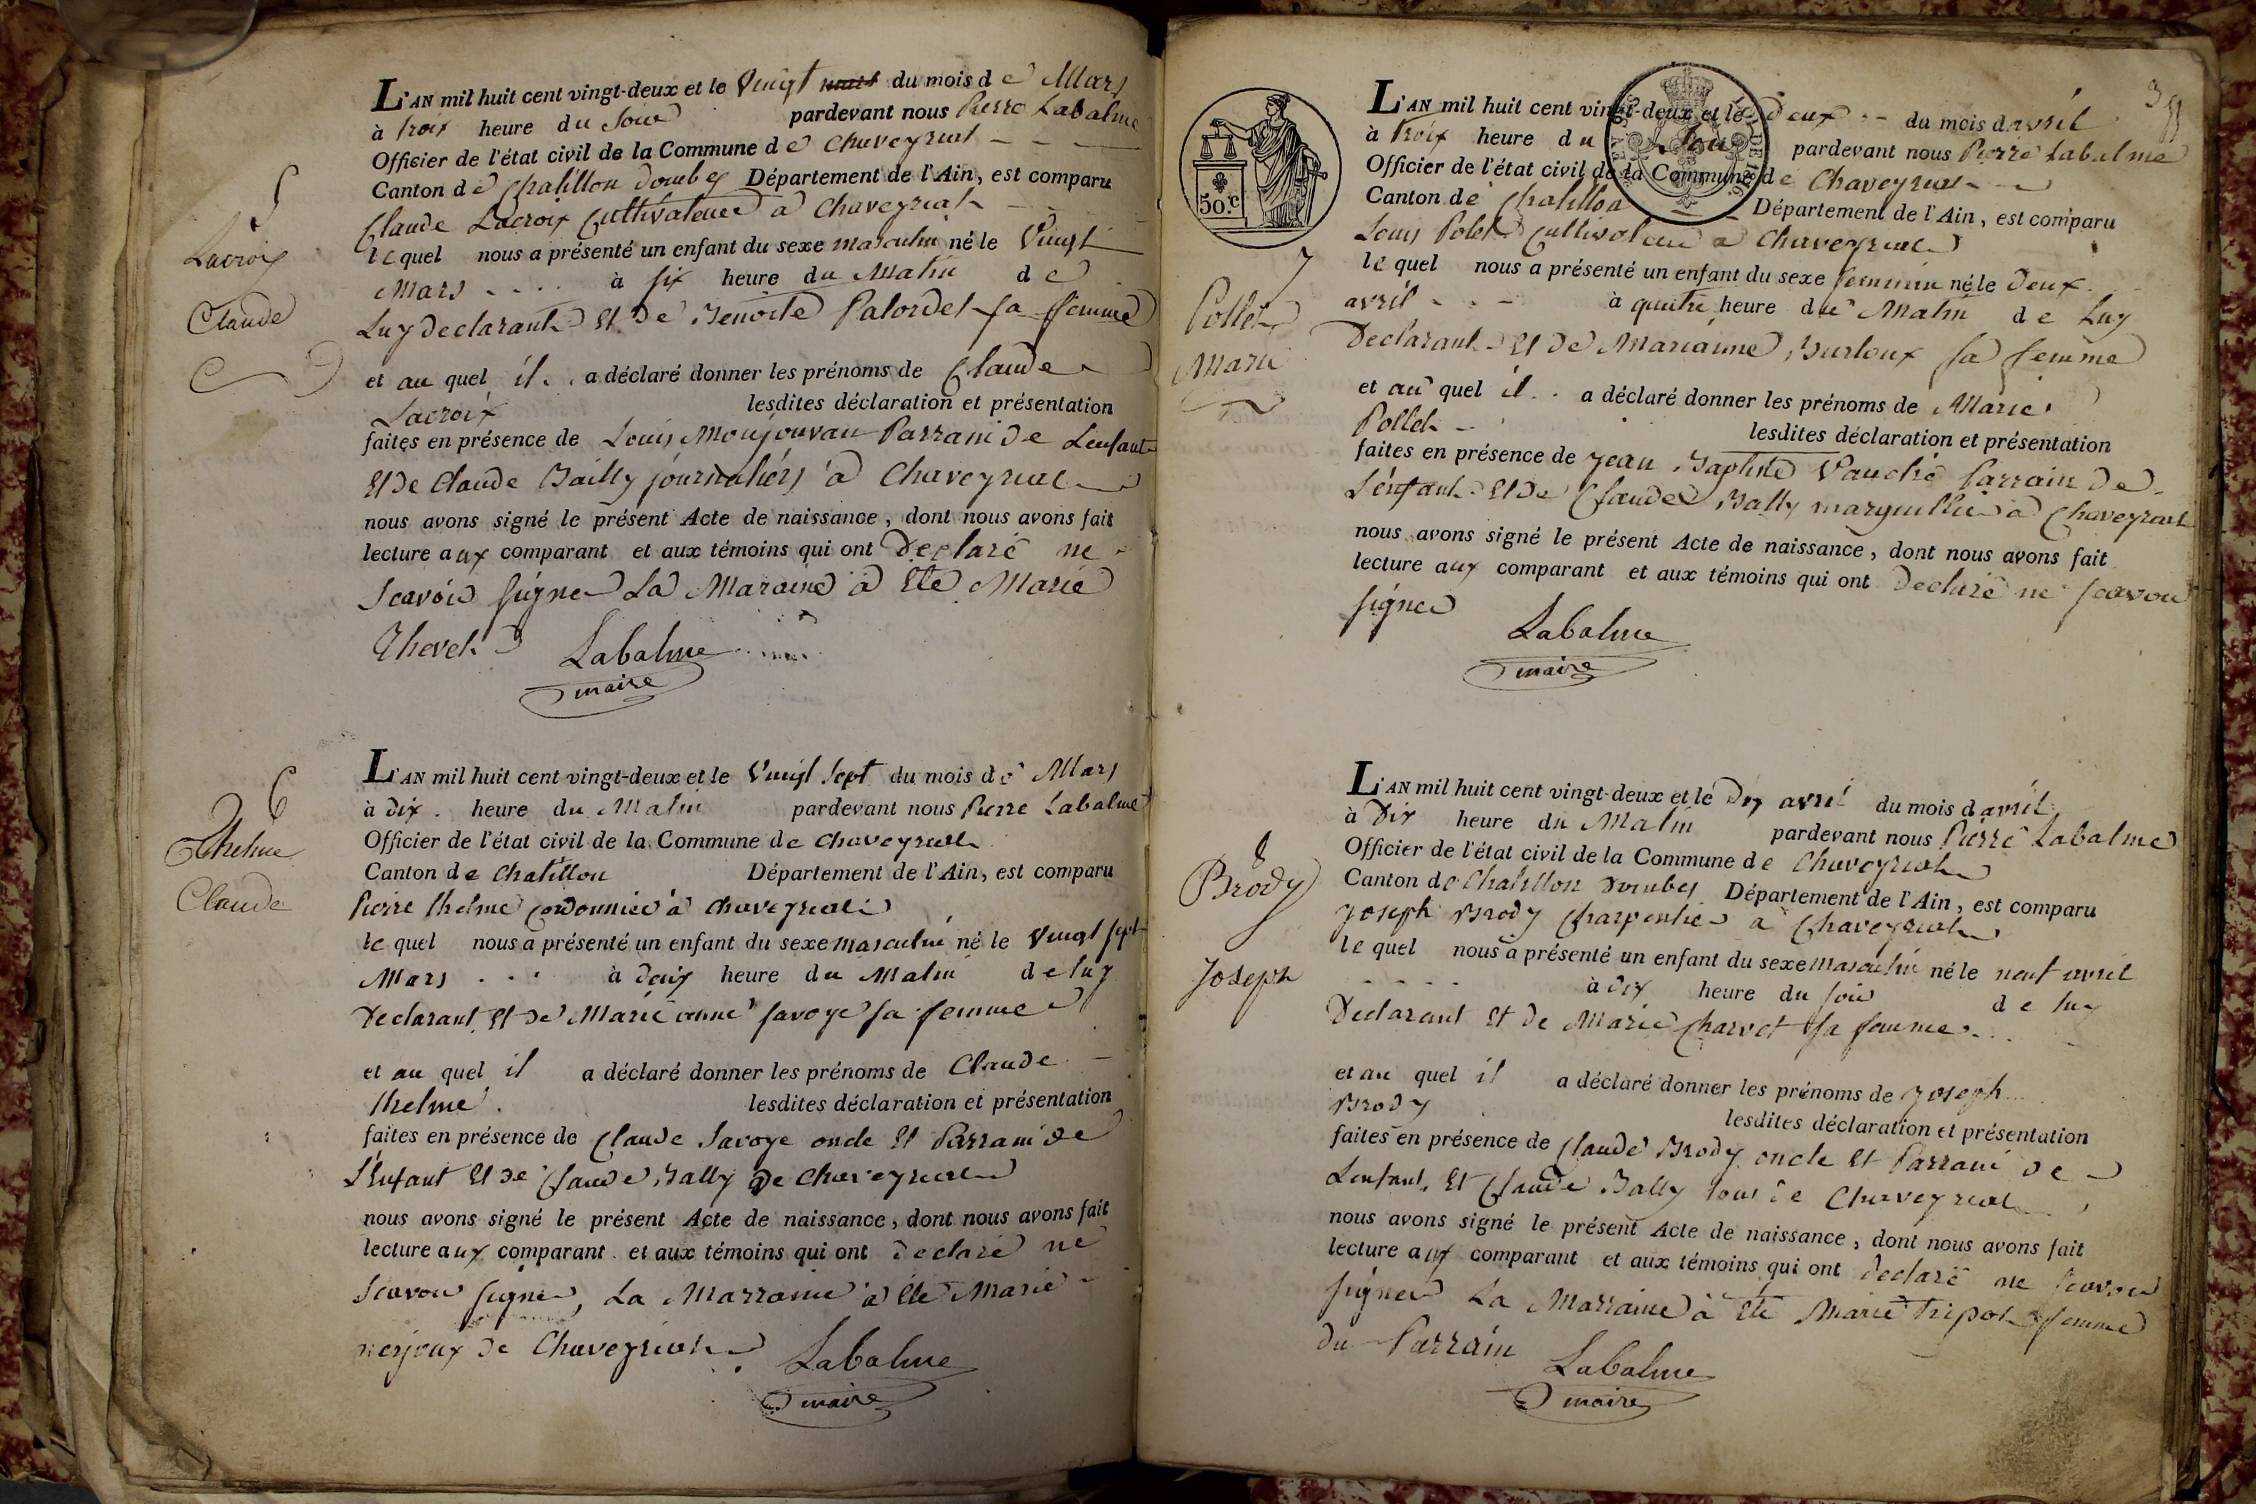 5
Lacroix
Claude
L'AN mil huit cent vingt-deux et le Vingt du mois de Mars
à trois heure du Soir pardevant nous Pierre Labalme
Officier de l'état civil de la Commune de Chaveyriat
Canton de Chatillon dombes Département de l'Ain, est comparu
Claude Lacroix Cultivateur a Chaveyriat
le quel nous a présenté un enfant du sexe masculin né le Vingt
Mars à six heure du Matin de
Luy declarant Et De Benoite Palordet sa femme
et au quel il a déclaré donner les prénoms de Claude
Lacroix lesdites déclaration et présentation
faites en présence de Louis Monjouvan Parrain De Lenfant
Et De Claude Bailly journaliers à Chaveyriat
nous avons signé le présent Acte de naissance, dont nous avons fait
lecture aux comparant et aux témoins qui ont Declaré ne
Scavoir signer La Maraine à Ete Marie
Thevet
Labalme
maire
6
Thelme
Claude
L'AN mil huit cent vingt-deux et le Vingt Sept du mois de Mars
à Dix heure du Matin pardevant nous Pierre Labalme
Officier de l'état civil de la Commune de Chaveyriat
Canton de Chatillon Département de l'Ain, est comparu
Pierre thelme Cordonnier à Chaveyriat
le quel nous a présenté un enfant du sexe masculin né le Vingt sept
Mars à deux heure du Matin de luy
Declarant Et De Marie anne Savoye sa femme
et au quel il a déclaré donner les prénoms de Claude
thelme lesdites déclaration et présentation
faites en présence de Claude Savoye oncle Et Parrain de
L'Enfant Et De Claude Bally De Chaveyriat
nous avons signé le présent Acte de naissance, dont nous avons fait
lecture aux comparant et aux témoins qui ont declaré ne
Scavoir signer, La Marraine à Ete Marie
nerjoux De Chaveyriat
Labalme
maire
7
Pollet
Marie
50.c
L'AN mil huit cent vingt-deux et le deux du mois d avril
à trois heure du Soir pardevant nous Pierre Labalme
Officier de l'état civil de la Commune de Chaveyriat
Canton de Chatillon Département de l'Ain, est comparu
Louis Polet Cultivateur a Chaveyriat
le quel nous a présenté un enfant du sexe feminin né le Deux
avril à quatre heure du Matin de Luy
Declarant Et De Marianne Burloux sa femme
et au quel il a déclaré donner les prénoms de Marie
Pollet lesdites déclaration et présentation
faites en présence de Jean Baptiste Vauché Parrain De
L'enfant Et De Claude Bally marguillier à Chaveyriat
nous avons signé le présent Acte de naissance, dont nous avons fait
lecture aux comparant et aux témoins qui ont Declaré ne scavoir
signer
Labalme
maire
8
Brody
Joseph
L'AN mil huit cent vingt-deux et le Dix avril du mois d avril
à Dix heure du Matin pardevant nous Pierre Labalme
Officier de l'état civil de la Commune de Chaveyriat
Canton de Chatillon Dombes Département de l'Ain, est comparu
Joseph Brody Charpentier a Chaveyriat
le quel nous a présenté un enfant du sexe masculin né le neuf avril
à dix heure du soir de luy
Declarant Et de Marie Charvet sa femme
et au quel il a déclaré donner les prénoms de Joseph
Brody lesdites déclaration et présentation
faites en présence de Claude Brody oncle Et Parrain De
Lenfant, Et Claude Bally tous de Chaveyriat
nous avons signé le présent Acte de naissance, dont nous avons fait
lecture aux comparant et aux témoins qui ont declaré ne scavoir
signer La Marraine à Ete Marie tripot femme
du Parrain
Labalme
maire